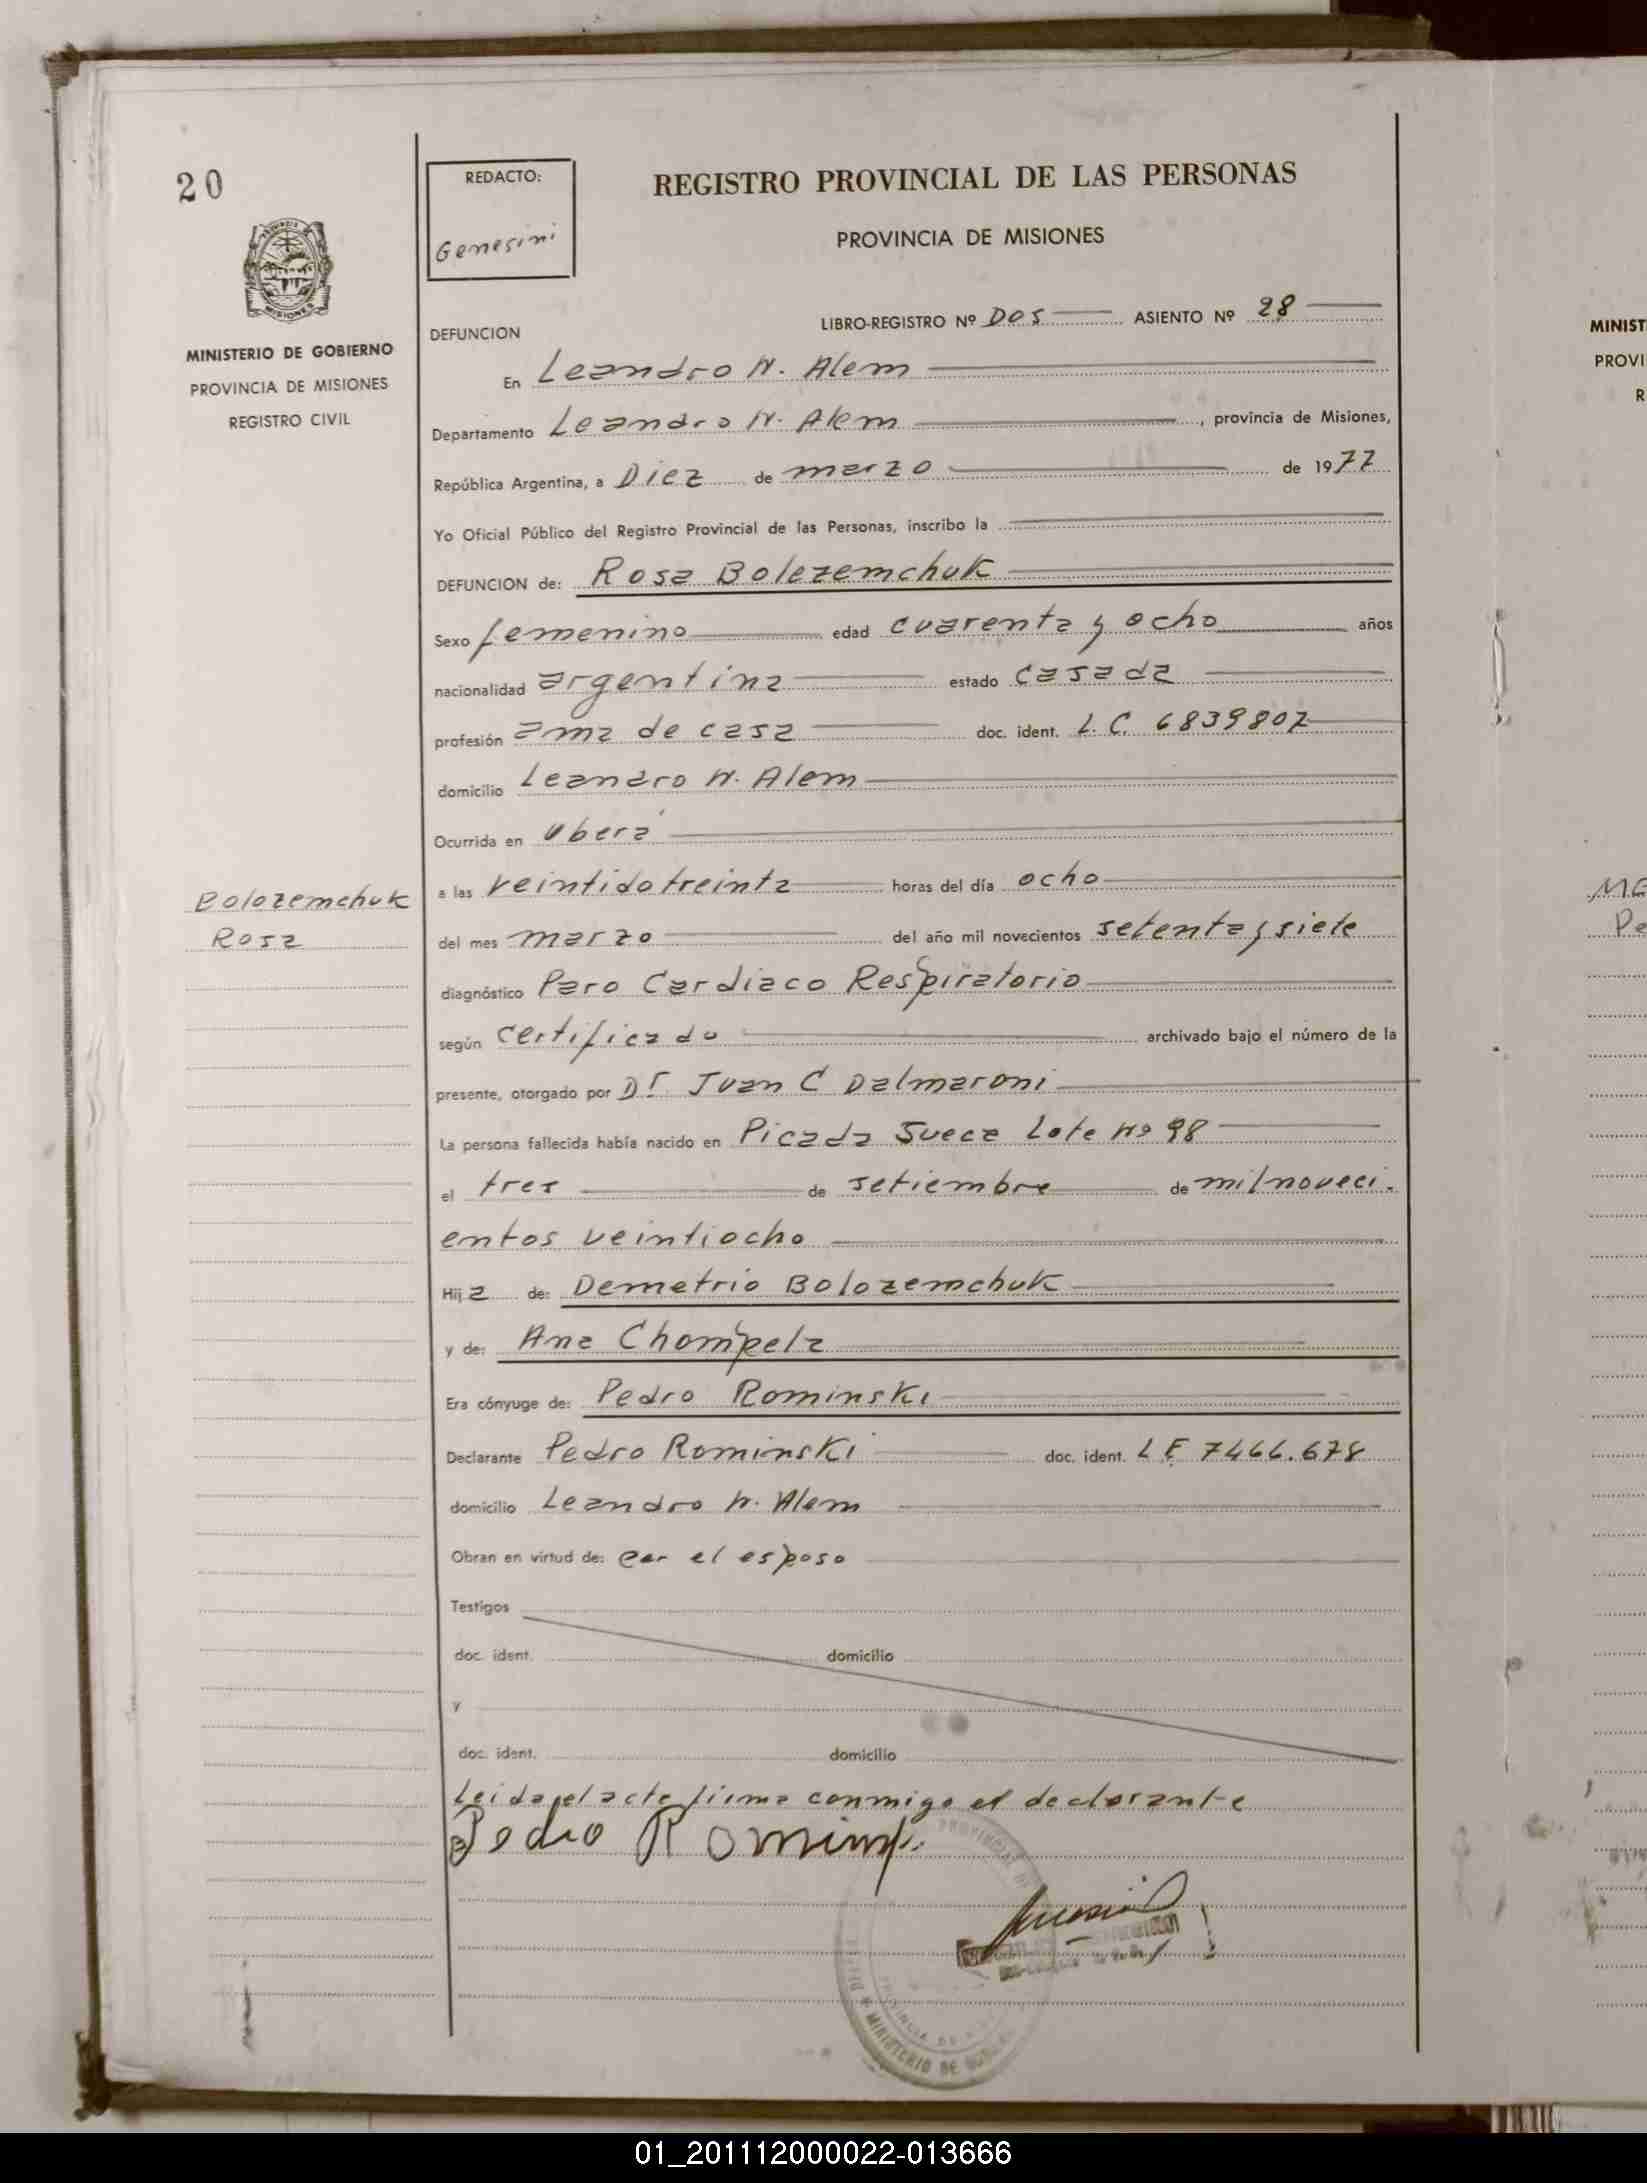 20
REDACTO:
Genesini
REGISTRO PROVINCIAL DE LAS PERSONAS
PROVINCIA DE MISIONES
MISIONES
MINISTERIO DE GOBIERNO
PROVINCIA DE MISIONES
REGISTRO CIVIL
DEFUNCION
LIBRO-REGISTRO Nº DOS ASIENTO Nº 28
En Leandro N. Alem
Departamento Leandro N. Alem, provincia de Misiones,
República Argentina, a Diez de marzo de 1977
Yo Oficial Público del Registro Provincial de las Personas, inscribo la
DEFUNCION de: Rosa Bolezemchuk
Sexo femenino edad cuarenta y ocho años
nacionalidad argentina estado casada
profesión ama de casa doc. ident. L. C. 6839807
domicilio Leandro N. Alem
Ocurrida en Oberá
a las veintidotreinta horas del día ocho
Bolozemchuk
Rosa
del mes marzo del año mil novecientos setenta y siete
diagnóstico Paro Cardiaco Respiratorio
según certificado archivado bajo el número de la
presente, otorgado por Dr. Juan C Dalmaroni
La persona fallecida había nacido en Picada Sueca Lote Nº 98
el tres de setiembre de milnoveci.
entos veintiocho
Hija de: Demetrio Bolozemchuk
y de: Ana Chompela
Era cónyuge de: Pedro Rominski
Declarante Pedro Rominski doc. ident. L E 7466.678
domicilio Leandro N. Alem
Obran en virtud de: cer el esposo
Testigos
doc. ident. domicilio
y
doc. ident. domicilio
Leida el acta firma conmigo el declarante
Pedro
MINIST
PROVI
R
01_201112000022-013666